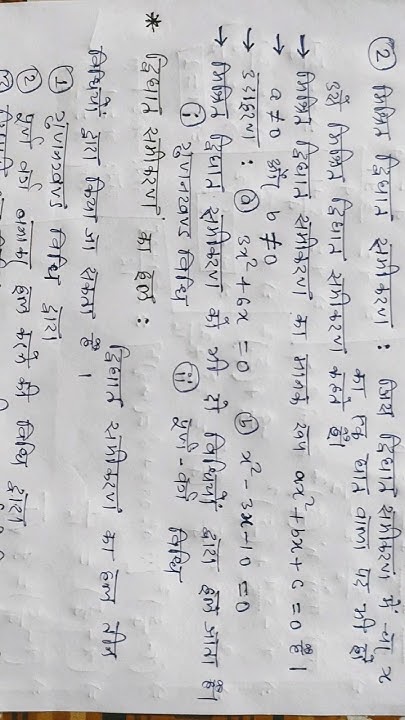 ② मिश्रित द्विघात समीकरण : जिस द्विघात समीकरण में चर x
का द्विघात वाला पद भी हो
उसे मिश्रित द्विघात समीकरण कहते हैं।
→ मिश्रित द्विघात समीकरण का मानक रूप ax² + bx + c = 0 है।
a ≠ 0 और b ≠ 0
→ उदाहरण : ⓐ 3x² + 6x = 0 ⓑ x² - 3x - 10 = 0
→ मिश्रित द्विघात समीकरण को भी दो विधियों द्वारा हल जाता है।
ⓘ गुणनखण्ड विधि ⓘⓘ पूर्ण-वर्ग विधि
* द्विघात समीकरण का हल :
द्विघात समीकरण का हल तीन
विधियों द्वारा किया जा सकता है।
① गुणनखण्ड विधि द्वारा
② पूर्ण वर्ग बनाकर हल करने की विधि द्वारा